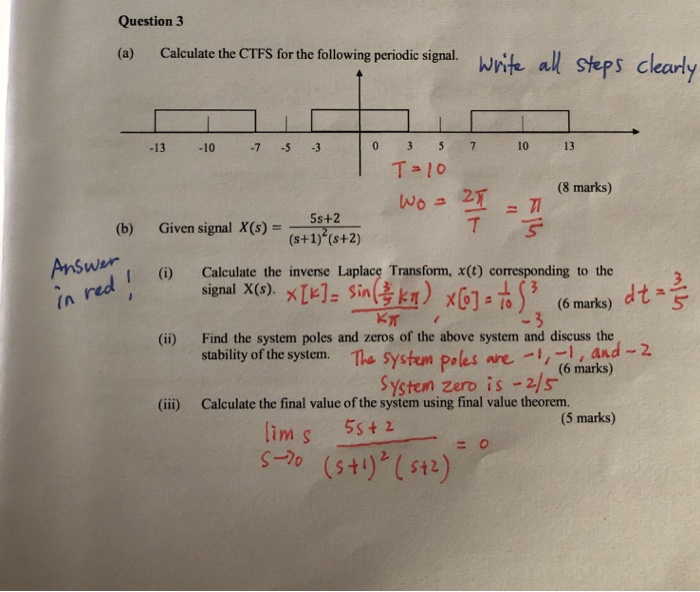 Question 3
(a) Calculate the CTFS for the following periodic signal.
Write all steps clearly
-13 -10 -7 -5 -3 0 3 5 7 10 13
T = 10
(8 marks)
W0 = 2π/T = π/5
(b) Given signal X(s) = 5s+2/(s+1)²(s+2)
Answer
in red!
(i) Calculate the inverse Laplace Transform, x(t) corresponding to the
signal X(s).
(6 marks)
X[k] = sin(3/5 kπ)/kπ , X[0] = 1/10 ∫₋₃³ dt = 3/5
(ii) Find the system poles and zeros of the above system and discuss the
stability of the system.
The system poles are -1, -1, and -2
(6 marks)
System zero is -2/5
(iii) Calculate the final value of the system using final value theorem.
(5 marks)
lim s→0 s 5s+2/(s+1)²(s+2) = 0